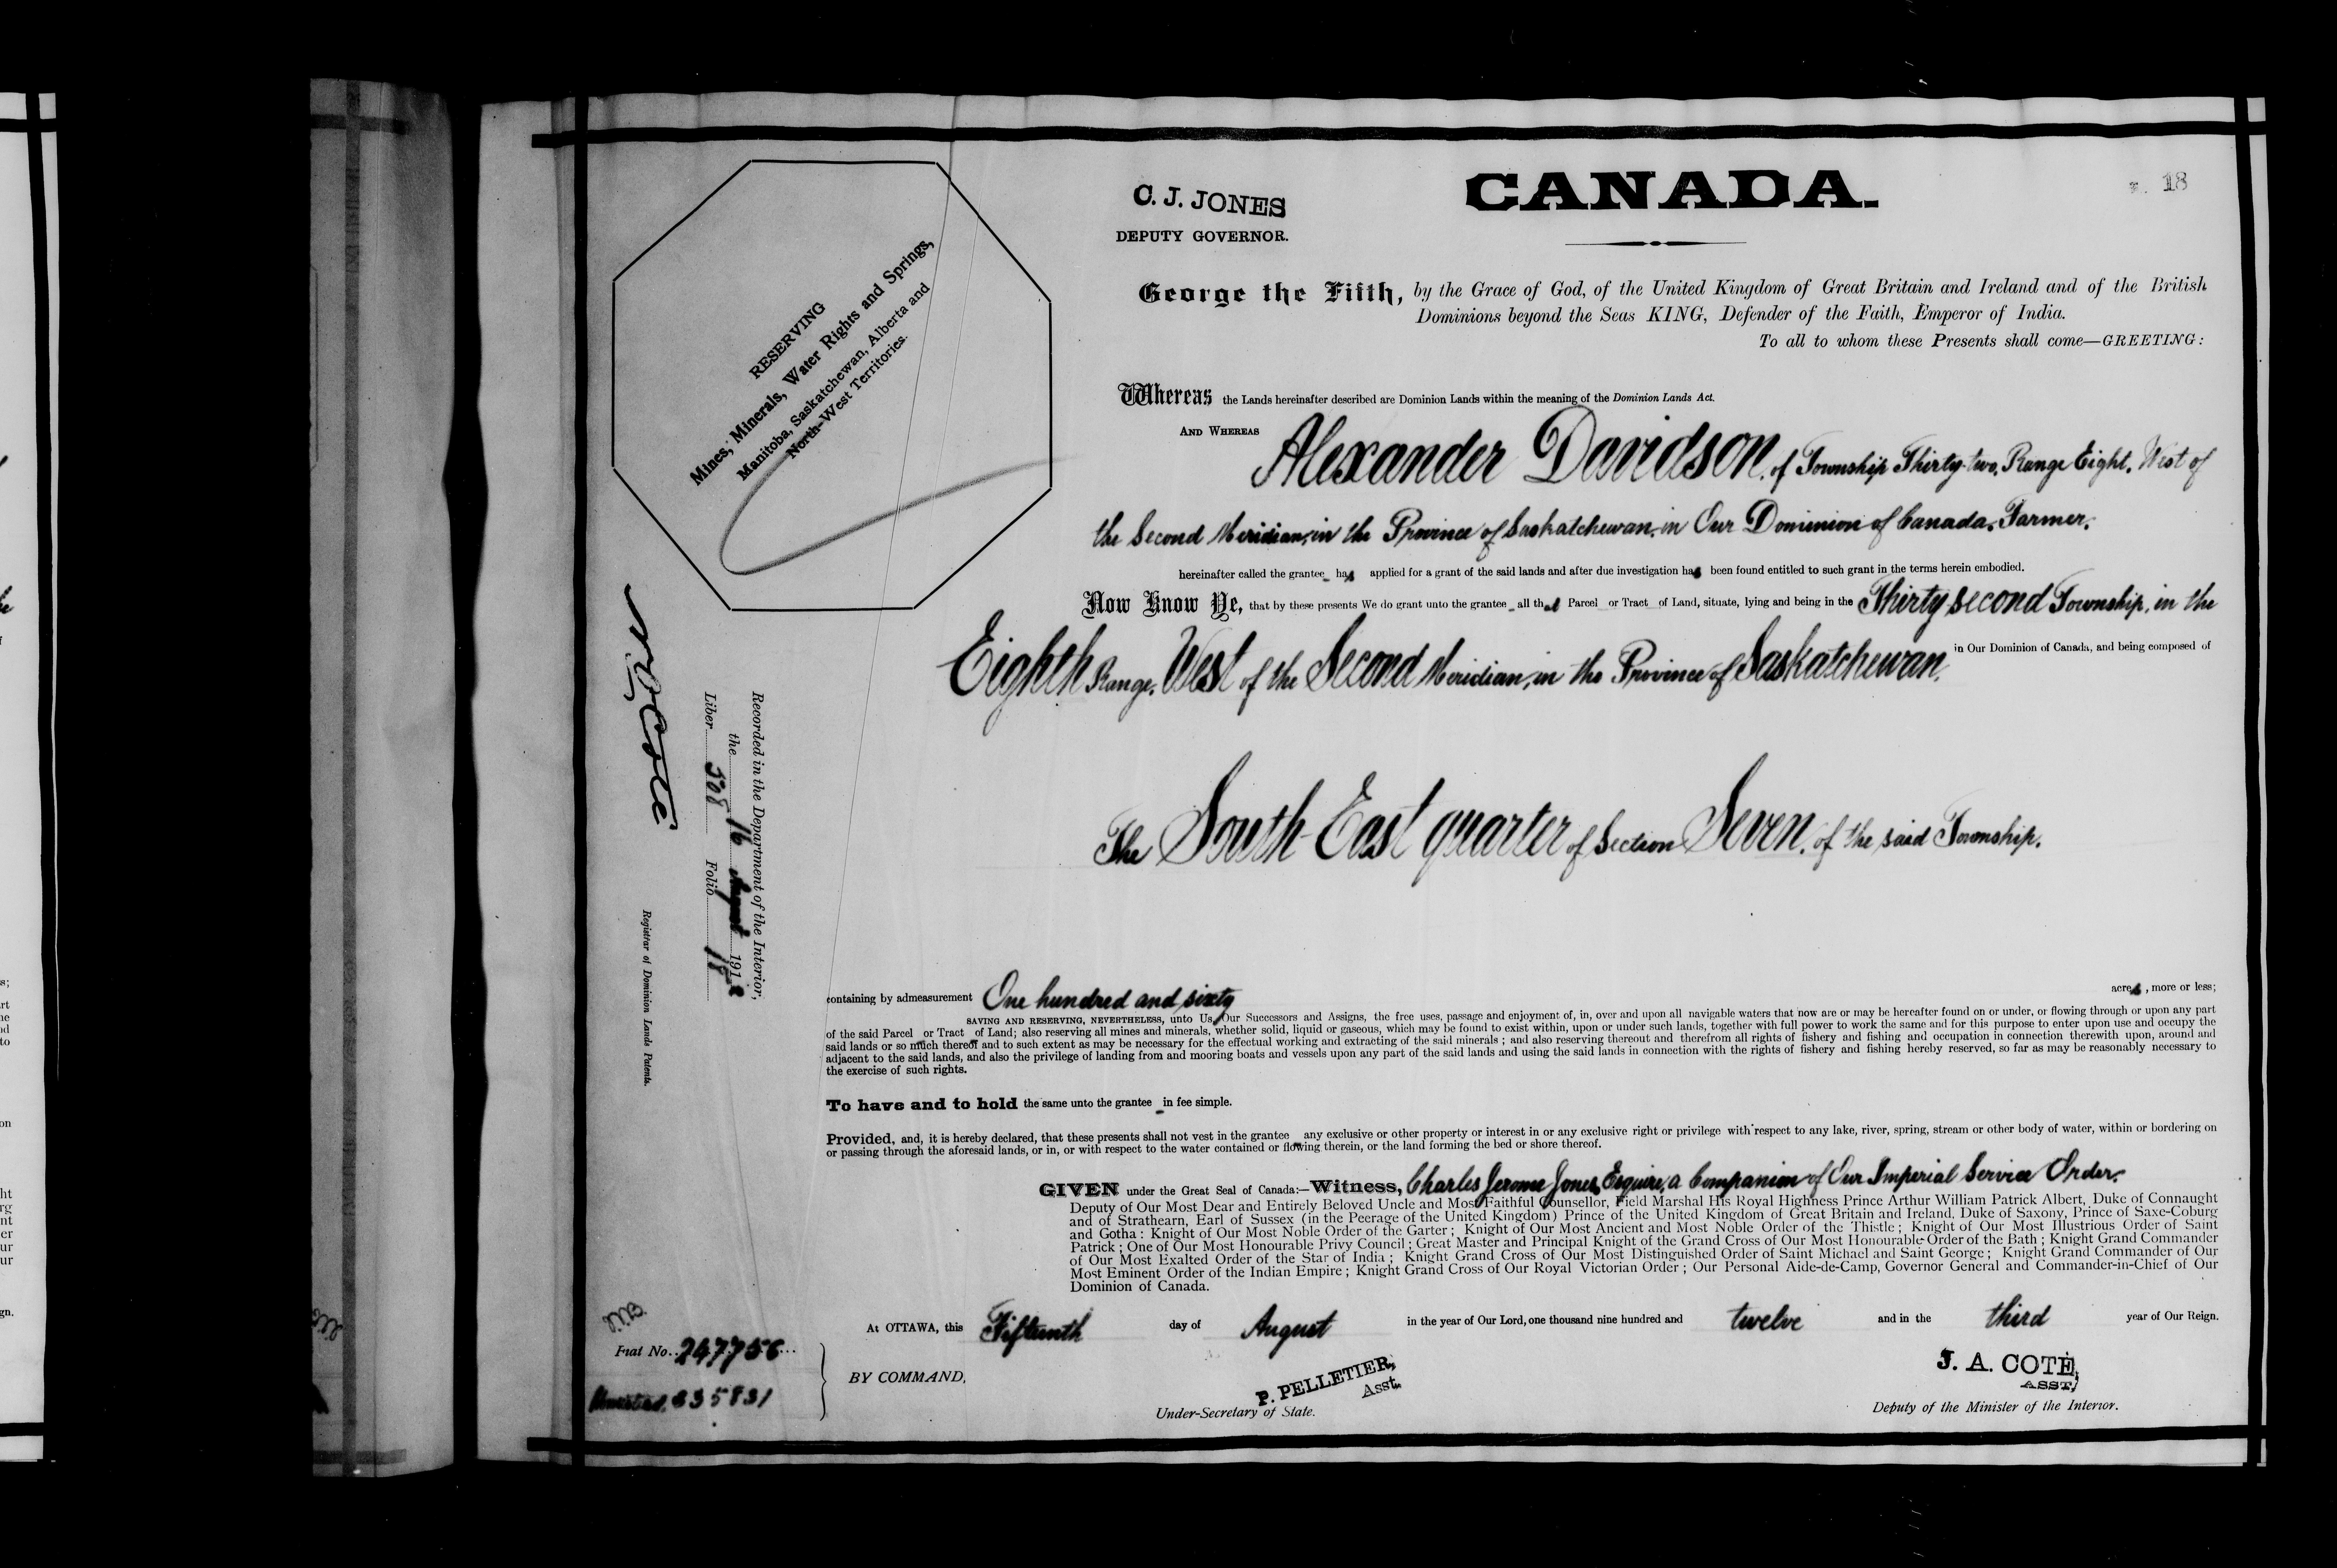 C. J. JONES
DEPUTY GOVERNOR.
CANADA.
18
RESERVING
Mines, Minerals, Water Rights and Springs,
Manitoba, Saskatchewan, Alberta and
North-West Territories.
George the Fifth, by the Grace of God, of the United Kingdom of Great Britain and Ireland and of the British
Dominions beyond the Seas KING, Defender of the Faith, Emperor of India.
To all to whom these Presents shall come—GREETING:
Whereas the Lands hereinafter described are Dominion Lands within the meaning of the Dominion Lands Act.
AND WHEREAS Alexander Davidson, of Township Thirty-two, Range Eight, West of
the Second Meridian, in the Province of Saskatchewan, in Our Dominion of Canada, Farmer,
hereinafter called the grantee has applied for a grant of the said lands and after due investigation has been found entitled to such grant in the terms herein embodied.
Now Know Ye, that by these presents We do grant unto the grantee all that Parcel or Tract of Land, situate, lying and being in the Thirty second Township, in the
Eighth Range, West of the Second Meridian, in the Province of Saskatchewan, in Our Dominion of Canada, and being composed of
The South-East quarter of Section Seven, of the said Township.
containing by admeasurement One hundred and sixty acres, more or less;
SAVING AND RESERVING, NEVERTHELESS, unto Us, Our Successors and Assigns, the free uses, passage and enjoyment of, in, over and upon all navigable waters that now are or may be hereafter found on or under, or flowing through or upon any part
of the said Parcel or Tract of Land; also reserving all mines and minerals, whether solid, liquid or gaseous, which may be found to exist within, upon or under such lands, together with full power to work the same and for this purpose to enter upon use and occupy the
said lands or so much thereof and to such extent as may be necessary for the effectual working and extracting of the said minerals ; and also reserving thereout and therefrom all rights of fishery and fishing and occupation in connection therewith upon, around and
adjacent to the said lands, and also the privilege of landing from and mooring boats and vessels upon any part of the said lands and using the said lands in connection with the rights of fishery and fishing hereby reserved, so far as may be reasonably necessary to
the exercise of such rights.
To have and to hold the same unto the grantee in fee simple.
Provided, and, it is hereby declared, that these presents shall not vest in the grantee any exclusive or other property or interest in or any exclusive right or privilege with respect to any lake, river, spring, stream or other body of water, within or bordering on
or passing through the aforesaid lands, or in, or with respect to the water contained or flowing therein, or the land forming the bed or shore thereof.
GIVEN under the Great Seal of Canada:—Witness, Charles Jerome Jones, Esquire, a Companion of Our Imperial Service Order.
Deputy of Our Most Dear and Entirely Beloved Uncle and Most Faithful Counsellor, Field Marshal His Royal Highness Prince Arthur William Patrick Albert, Duke of Connaught
and of Strathearn, Earl of Sussex (in the Peerage of the United Kingdom) Prince of the United Kingdom of Great Britain and Ireland, Duke of Saxony, Prince of Saxe-Coburg
and Gotha: Knight of Our Most Noble Order of the Garter; Knight of Our Most Ancient and Most Noble Order of the Thistle; Knight of Our Most Illustrious Order of Saint
Patrick; One of Our Most Honourable Privy Council; Great Master and Principal Knight of the Grand Cross of Our Most Honourable Order of the Bath; Knight Grand Commander
of Our Most Exalted Order of the Star of India; Knight Grand Cross of Our Most Distinguished Order of Saint Michael and Saint George; Knight Grand Commander of Our
Most Eminent Order of the Indian Empire; Knight Grand Cross of Our Royal Victorian Order; Our Personal Aide-de-Camp, Governor General and Commander-in-Chief of Our
Dominion of Canada.
At OTTAWA, this Fifteenth day of August in the year of Our Lord, one thousand nine hundred and twelve and in the third year of Our Reign.
BY COMMAND,
P. PELLETIER,
Asst.
Under-Secretary of State.
J. A. COTÉ,
ASST,
Deputy of the Minister of the Interior.
Recorded in the Department of the Interior,
the 16 August 1912
Liber 508 Folio 18
Registrar of Dominion Lands Patents.
Fiat No. 247756